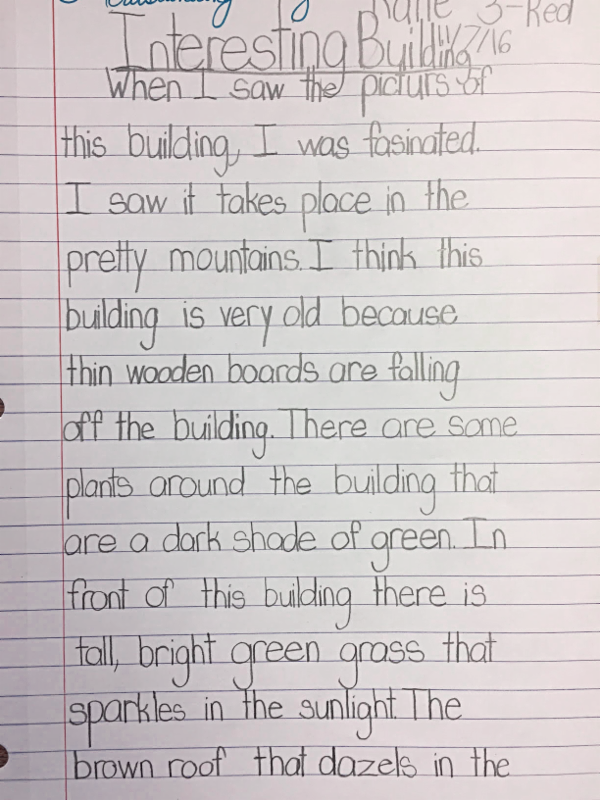 Outstanding
3-Red
11/7/16
Interesting Building
When I saw the picturs of
this building, I was fasinated.
I saw it takes place in the
pretty mountains. I think this
building is very old because
thin wooden boards are falling
off the building. There are some
plants around the building that
are a dark shade of green. In
front of this building there is
tall, bright green grass that
sparkles in the sunlight. The
brown roof that dazels in the